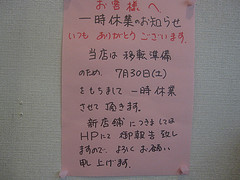 お客様へ
一時休業のお知らせ
いつも ありがとう ございます。
当店は 移転準備
のため、7月30日(土)
をもちまして 一時休業
させて 頂きます。
新店舗に つきましては
HPにて 御報告致し
ますので、よろしくお願い
申し上げます。